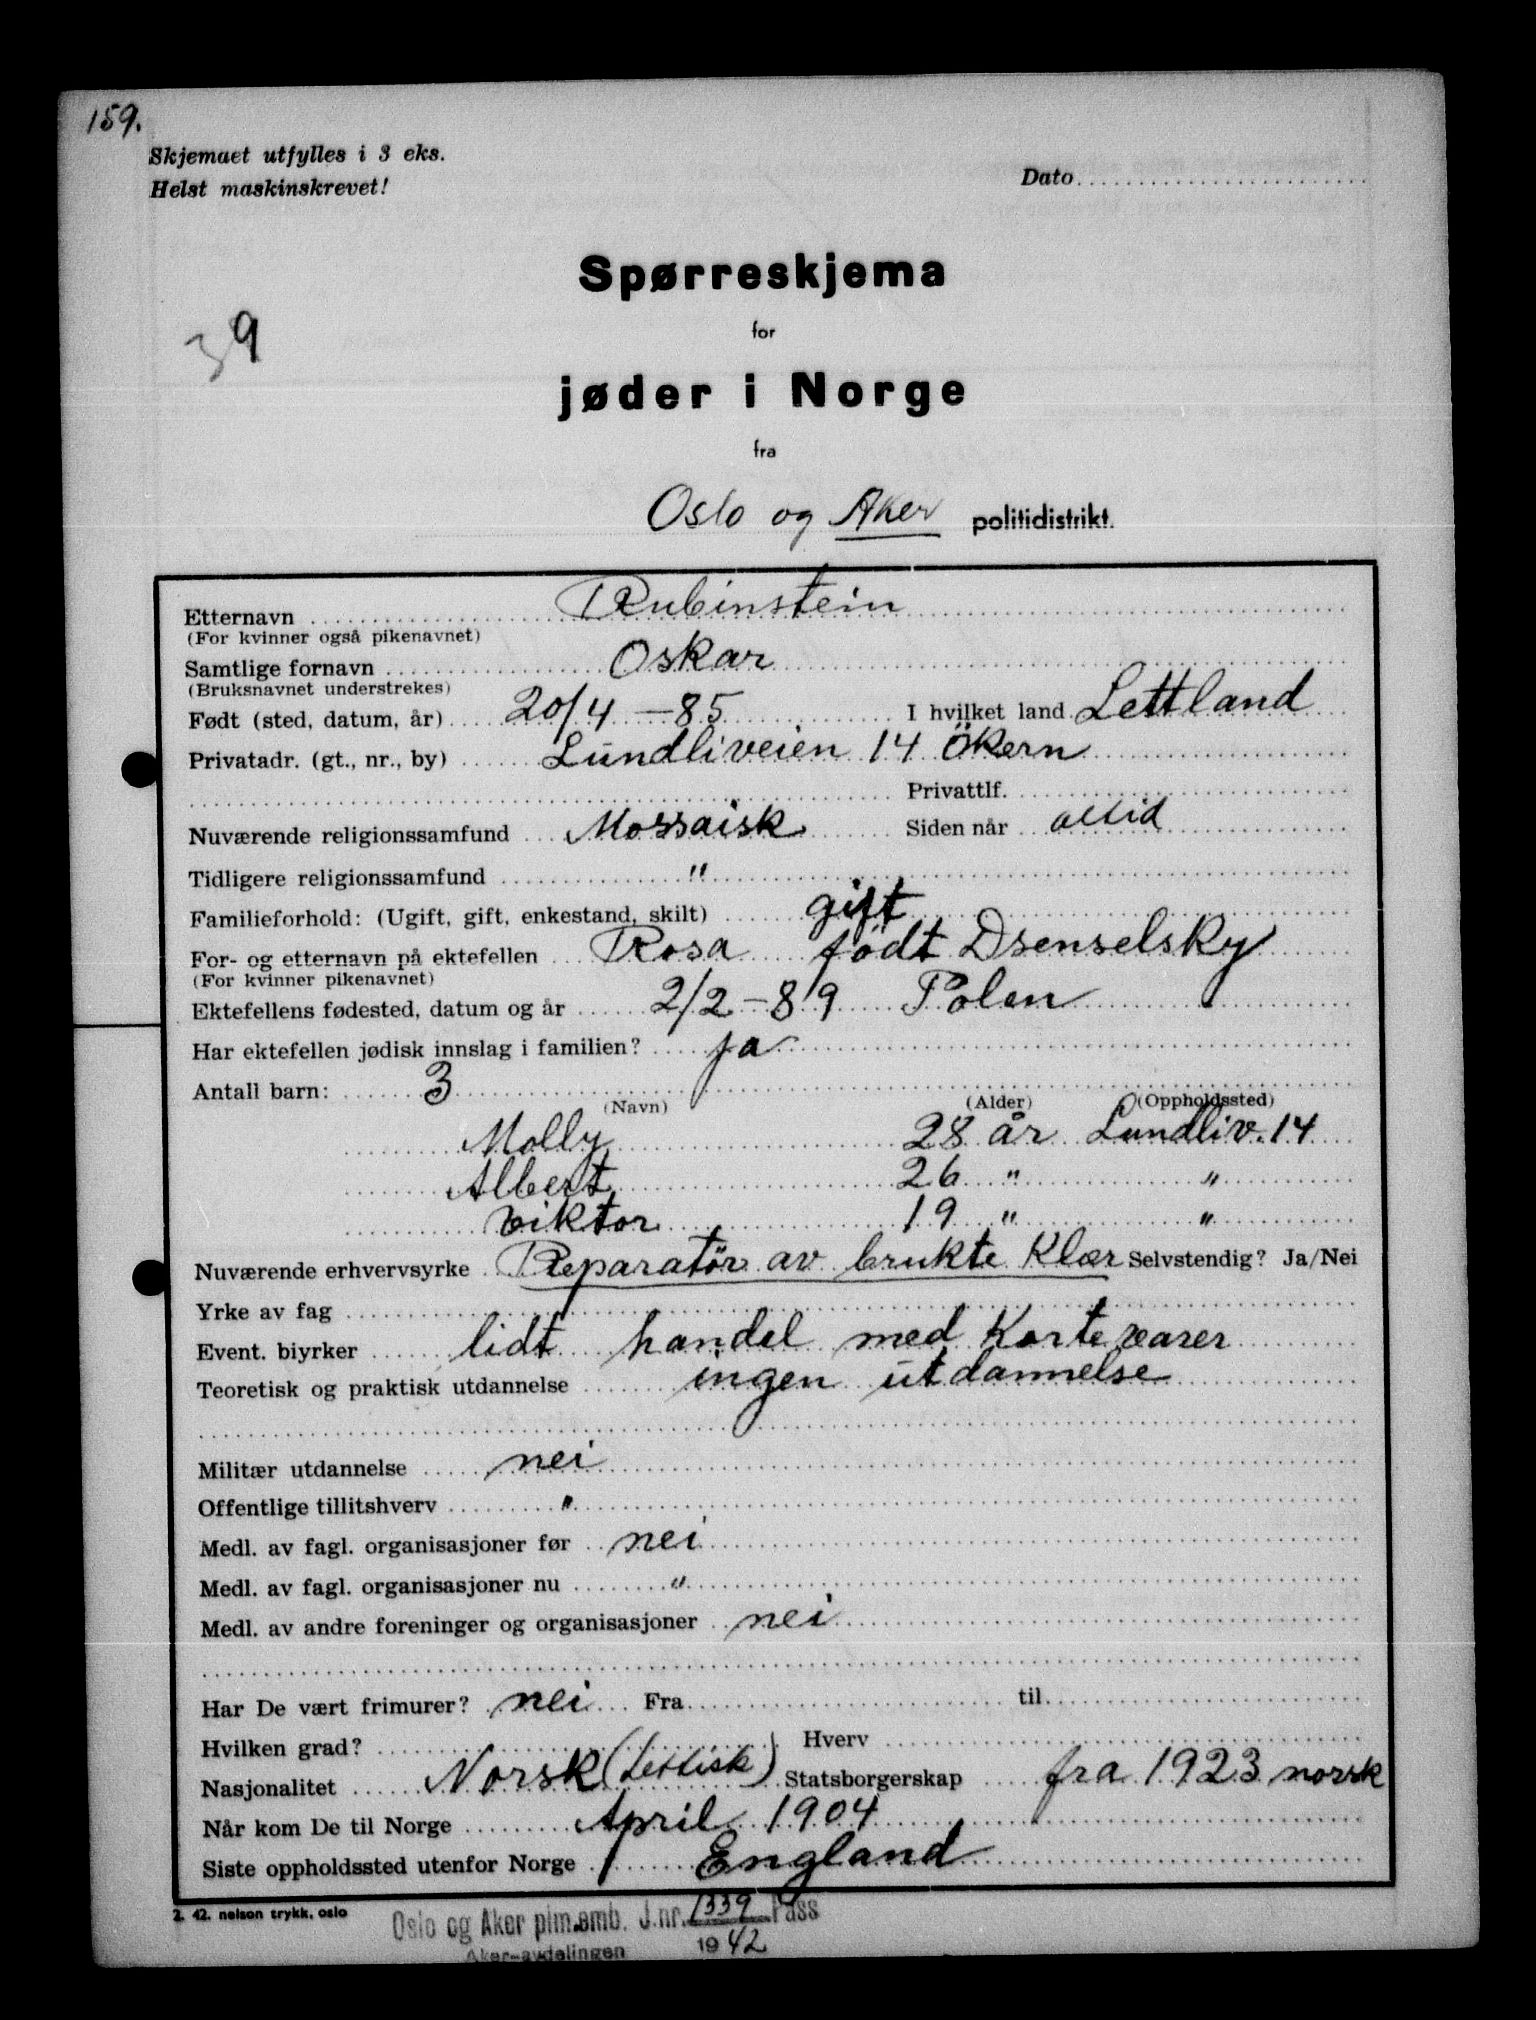 159.
Skjemaet utfylles i 3 eks.
Helst maskinskrevet!
Dato
Spørreskjema
39
for
jøder i Norge
fra
Oslo og Aker politidistrikt.
Etternavn Rubinstein
(For kvinner også pikenavnet)
Samtlige fornavn Oskar
(Bruksnavnet understrekes)
Født (sted, datum, år) 20/4 - 85 I hvilket land Lettland
Privatadr. (gt., nr., by) Lundliveien 14 Ökern
Privattlf.
Nuværende religionssamfund Mossaisk Siden når altid
Tidligere religionssamfund "
Familieforhold: (Ugift, gift, enkestand, skilt) gift
For- og etternavn på ektefellen Rosa født Dsenselsky
(For kvinner pikenavnet)
Ektefellens fødested, datum og år 2/2 - 89 Polen
Har ektefellen jødisk innslag i familien? ja
Antall barn: 3
(Navn) (Alder) (Oppholdssted)
Molly 28 år Lundliv. 14
Albert 26 " "
Viktor 19 " "
Nuværende erhvervsyrke Reparatør av brukte Klær Selvstendig? Ja/Nei
Yrke av fag
Event. biyrker lidt handel med Kortevarer
Teoretisk og praktisk utdannelse ingen utdannelse
Militær utdannelse nei
Offentlige tillitshverv "
Medl. av fagl. organisasjoner før nei
Medl. av fagl. organisasjoner nu "
Medl. av andre foreninger og organisasjoner nei
Har De vært frimurer? nei Fra til
Hvilken grad? Hverv
Nasjonalitet Norsk (Lettisk) Statsborgerskap fra 1923 norsk
Når kom De til Norge April 1904
Siste oppholdssted utenfor Norge England
2. 42. nelson trykk. oslo
Oslo og Aker plm.emb. J.nr. 1339 Pass
Aker-avdelingen 1942